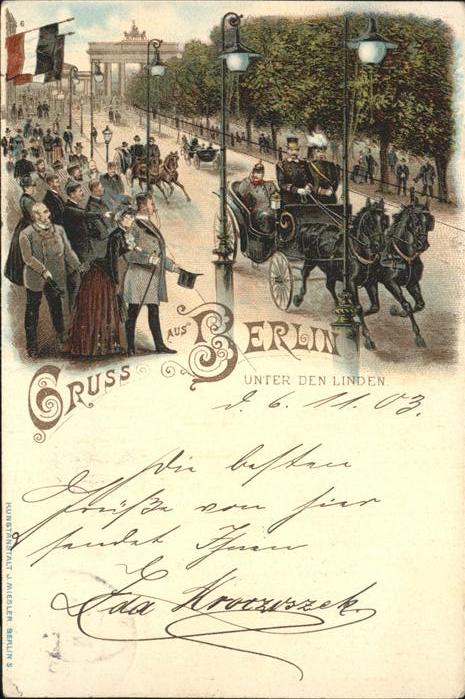 6
GRUSS AUS BERLIN
UNTER DEN LINDEN.
d. 6. 11. 03.
Die besten
Grüße von hier
sendet Ihnen
Ida
KUNSTANSTALT J. MIESLER BERLIN S.